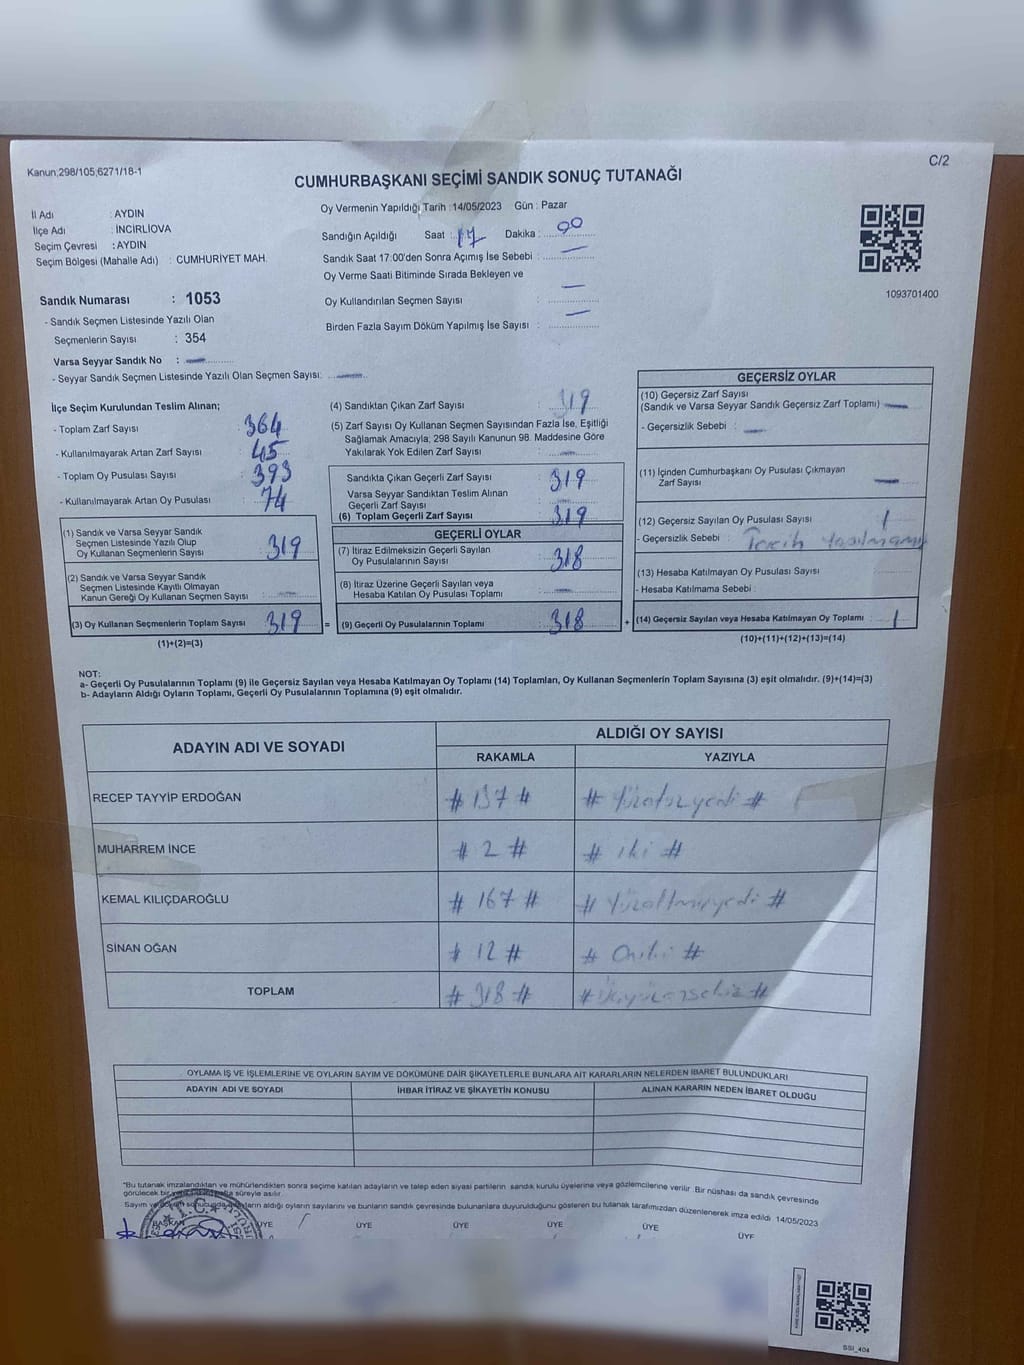 Kanun;298/105;6271/18-1
C/2
CUMHURBAŞKANI SEÇİMİ SANDIK SONUÇ TUTANAĞI
İl Adı : AYDIN
İlçe Adı : İNCİRLİOVA
Seçim Çevresi : AYDIN
Seçim Bölgesi (Mahalle Adı) : CUMHURİYET MAH.
Oy Vermenin Yapıldığı Tarih : 14/05/2023 Gün : Pazar
Sandığın Açıldığı Saat : 17 Dakika : 00
Sandık Saat 17:00'den Sonra Açımış İse Sebebi : —
Oy Verme Saati Bitiminde Sırada Bekleyen ve
Oy Kullandırılan Seçmen Sayısı : —
Birden Fazla Sayım Döküm Yapılmış İse Sayısı : —
1093701400
Sandık Numarası : 1053
- Sandık Seçmen Listesinde Yazılı Olan
Seçmenlerin Sayısı : 354
Varsa Seyyar Sandık No : —
- Seyyar Sandık Seçmen Listesinde Yazılı Olan Seçmen Sayısı: —
İlçe Seçim Kurulundan Teslim Alınan;
- Toplam Zarf Sayısı : 364
- Kullanılmayarak Artan Zarf Sayısı : 45
- Toplam Oy Pusulası Sayısı : 393
- Kullanılmayarak Artan Oy Pusulası : 74
(1) Sandık ve Varsa Seyyar Sandık
Seçmen Listesinde Yazılı Olup
Oy Kullanan Seçmenlerin Sayısı : 319
(2) Sandık ve Varsa Seyyar Sandık
Seçmen Listesinde Kayıtlı Olmayan
Kanun Gereği Oy Kullanan Seçmen Sayısı : —
(3) Oy Kullanan Seçmenlerin Toplam Sayısı : 319 =
(1)+(2)=(3)
(4) Sandıktan Çıkan Zarf Sayısı : 319
(5) Zarf Sayısı Oy Kullanan Seçmen Sayısından Fazla İse, Eşitliği
Sağlamak Amacıyla; 298 Sayılı Kanunun 98. Maddesine Göre
Yakılarak Yok Edilen Zarf Sayısı : —
Sandıkta Çıkan Geçerli Zarf Sayısı : 319
Varsa Seyyar Sandıktan Teslim Alınan
Geçerli Zarf Sayısı :
(6) Toplam Geçerli Zarf Sayısı : 319
GEÇERLİ OYLAR
(7) İtiraz Edilmeksizin Geçerli Sayılan
Oy Pusulasının Sayısı : 318
(8) İtiraz Üzerine Geçerli Sayılan veya
Hesaba Katılan Oy Pusulası Toplamı : —
(9) Geçerli Oy Pusulalarının Toplamı : 318 +
GEÇERSİZ OYLAR
(10) Geçersiz Zarf Sayısı
(Sandık ve Varsa Seyyar Sandık Geçersiz Zarf Toplamı) —
- Geçersizlik Sebebi : —
(11) İçinden Cumhurbaşkanı Oy Pusulası Çıkmayan
Zarf Sayısı : —
(12) Geçersiz Sayılan Oy Pusulası Sayısı : 1
- Geçersizlik Sebebi : Tercih Yapılmamış
(13) Hesaba Katılmayan Oy Pusulası Sayısı :
- Hesaba Katılmama Sebebi :
(14) Geçersiz Sayılan veya Hesaba Katılmayan Oy Toplamı : 1
(10)+(11)+(12)+(13)=(14)
NOT:
a- Geçerli Oy Pusulalarının Toplamı (9) ile Geçersiz Sayılan veya Hesaba Katılmayan Oy Toplamı (14) Toplamları, Oy Kullanan Seçmenlerin Toplam Sayısına (3) eşit olmalıdır. (9)+(14)=(3)
b- Adayların Aldığı Oyların Toplamı, Geçerli Oy Pusulalarının Toplamına (9) eşit olmalıdır.
ADAYIN ADI VE SOYADI ALDIĞI OY SAYISI
RAKAMLA YAZIYLA
RECEP TAYYİP ERDOĞAN # 137 # # Yüzotuzyedi #
MUHARREM İNCE # 2 # # iki #
KEMAL KILIÇDAROĞLU # 167 # # Yüzaltmışyedi #
SİNAN OĞAN # 12 # # Oniki #
TOPLAM # 318 # # Üçyüzonsekiz #
OYLAMA İŞ VE İŞLEMLERİNE VE OYLARIN SAYIM VE DÖKÜMÜNE DAİR ŞİKAYETLERLE BUNLARA AİT KARARLARIN NELERDEN İBARET BULUNDUKLARI
ADAYIN ADI VE SOYADI İHBAR İTİRAZ VE ŞİKAYETİN KONUSU ALINAN KARARIN NEDEN İBARET OLDUĞU
"Bu tutanak imzalandıktan ve mühürlendikten sonra seçime katılan adayların ve talep eden siyasi partilerin sandık kurulu üyelerine veya gözlemcilerine verilir. Bir nüshası da sandık çevresinde
görülecek bir süreyle asılır.
Sayım aldığı oyların sayılarını ve bunların sandık çevresinde bulunanlara duyurulduğunu gösteren bu tutanak tarafımızdan düzenlenerek imza edildi 14/05/2023
BAŞKAN ÜYE ÜYE ÜYE ÜYE ÜYE ÜYE
T.C.
SSI_404